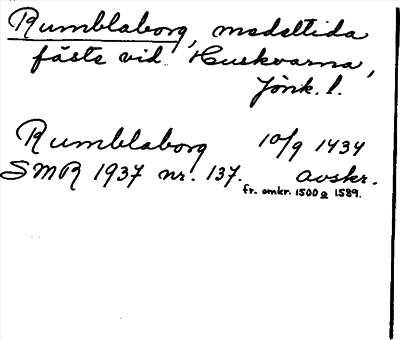 Rumblaborg, medeltida
fäste vid Huskvarna,
Jönk. l.
Rumblaborg 10/9 1434
SMR 1937 nr. 137. avskr.
fr. omkr. 1500 o 1589.